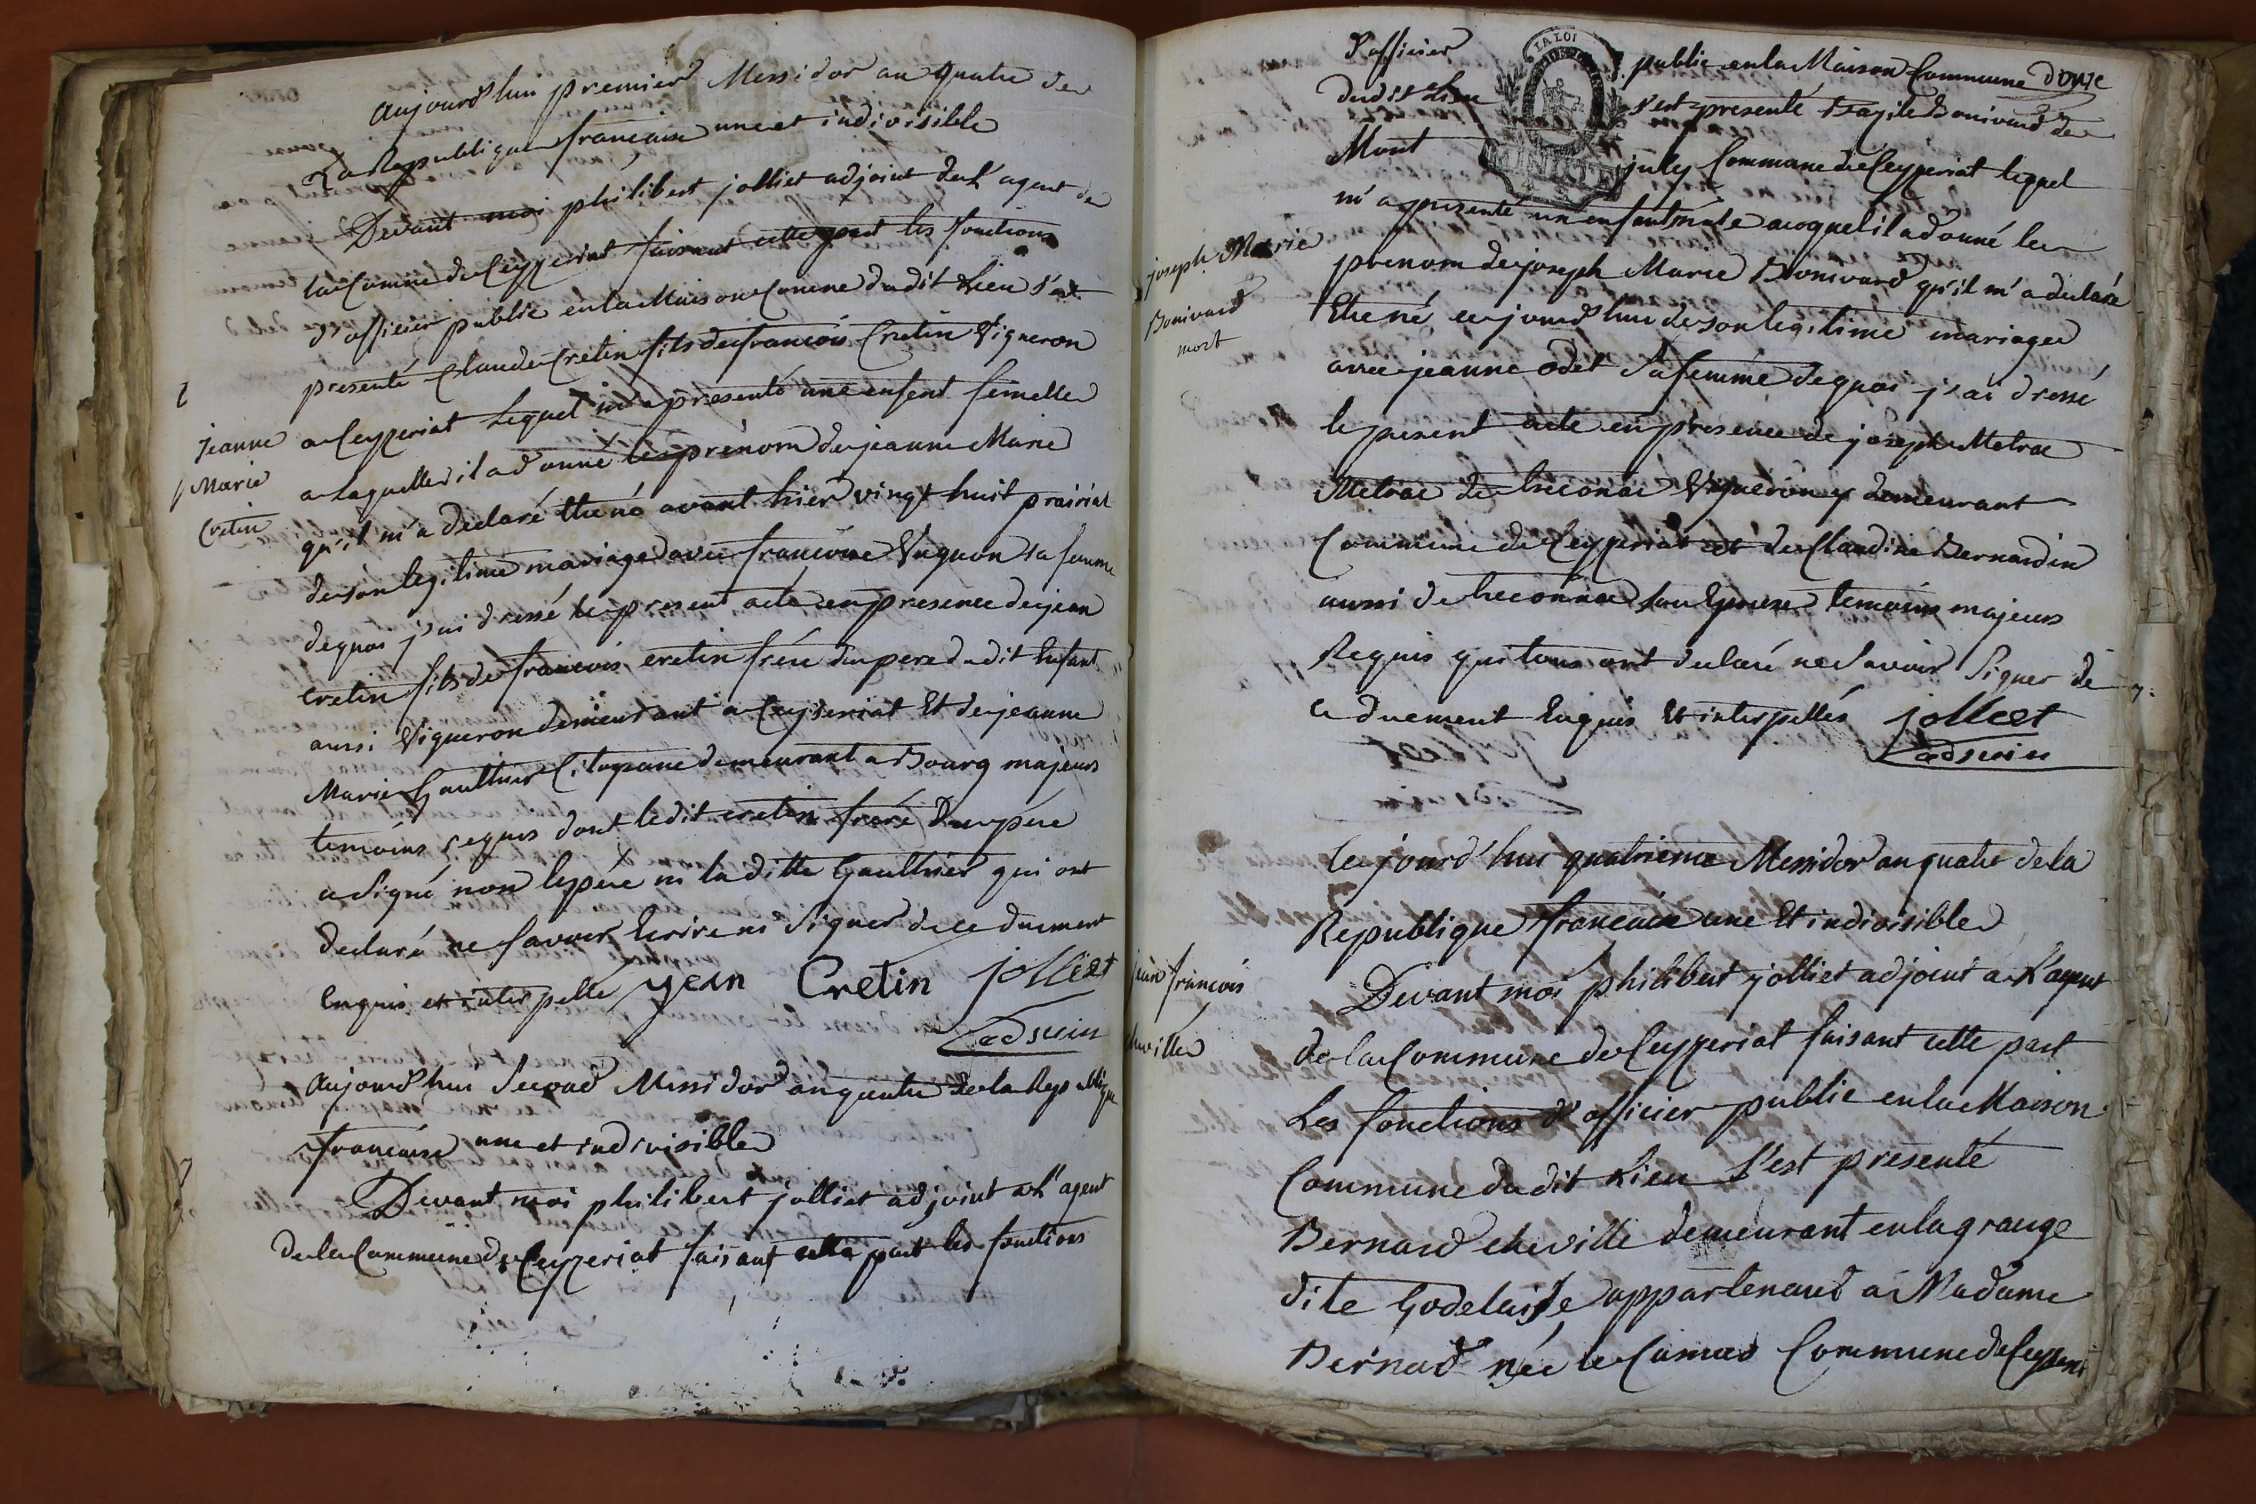 aujourd'hui premier Messidor an quatre de
La Republique francaise une et indivisible
Devant moi philibert jolliet adjoint de l'agent de
la Comune de Ceyzeriat faisant cette part les fonctions
d'officier public en la Maison Comune dudit Lieu s'est
presenté Claude Cretin fils de francois Cretin Vigneron
a Ceyzeriat Lequel m'a presenté une enfent femelle
a laquelle il a donné le prénom de jeanne Marie
qu'il m'a declaré Etre né avant hier vingt huit prairial
de son legitime mariage avec francoise Vuquon sa femme
de quoi j'ai dressé le present acte en presence de jean
cretin fils de francois cretin frére du pere dudit Enfant
aussi Vigneron demeurant a Ceyzeriat Et de jeanne
Marie Gauthier Citoyene demeurant a Bourg majeurs
temoins requis dont ledit cretin frere du pére
a Signé non lepére ni la ditte Gauthier qui ont
declaré ne savoir Ecrire ni Signer de ce duement
Enquis et interpellé jean Cretin jolliet
adjoin
jeanne
Marie
Cretin
Aujourd'hui Second Messidor an quatre de la Republique
francaise une et indivisible
Devant moi philibert jolliet adjoint a L'agent
de la Commune de Ceyzeriat faisant cette part les fonctions
d'officier public en la Maison Commune
dudit Lieu s'est presenté Bonivard de
Mont july Commune de Ceyzeriat lequel
LA LOI
m'a presenté un enfant mâle auquel il a donné le
prenom de joseph Marie Bonivard qu'il m'a declaré
Etre né ce jourd'hui de son legitime mariage
avec jeanne odet Sa femme de quoi j'ai dressé
le present acte en presence de joseph Metrae
Metrae de treconai Vigneron y demeurant
Commune de Ceyzeriat et de Claudine Bernardin
aussi de treconnai son Epouse temoins majeurs
Requis qui tous ont declaré ne Savoir Signer de
ce duement Enquis Et interpellés jolliet
adjoin
joseph Marie
Bonivard
mort
Cejourd'hui quatrieme Messidor an quatre de la
Republique francaise une Et indivisible
Devant moi philibert jolliet adjoint a L'agent
de la Commune de Ceyzeriat faisant cette part
Les fonctions d'officier public en la Maison
Commune du dit Lieu S'est presenté
Bernard cheville demeurant en la grange
dite Godelaise appartenant a Madame
Bernad née le Camus Commune de Ceyzeriat
francois